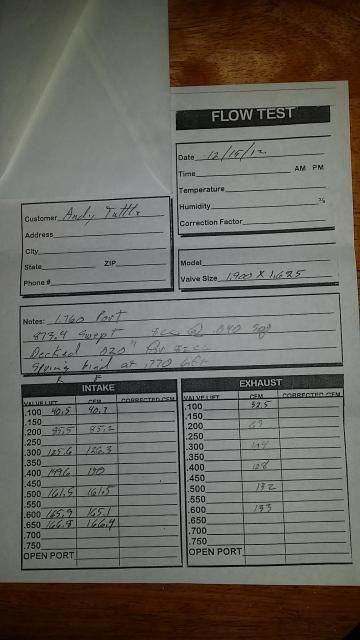 FLOW TEST
Date 12/15/12
Time AM PM
Temperature
Humidity %
Correction Factor
Customer Andy Tuttle
Address
City
State ZIP
Phone #
Model
Valve Size 1.900 X 1.625
Notes: 1.760 Port
Swept .040
Decked .020"
Spring bind at .770
INTAKE
VALVE LIFT CFM CORRECTED CFM
.100 40.5 40.7
.150
.200 85.5 85.2
.250
.300 125.6 126.3
.350
.400 149.6
.450
.500 161.5 161.5
.550
.600 165.9 165.1
.650 166.8 166.9
.700
.750
OPEN PORT
EXHAUST
VALVE LIFT CFM CORRECTED CFM
.100 32.5
.150
.200
.250
.300
.350
.400 128
.450
.500 132
.550
.600 133
.650
.700
.750
OPEN PORT